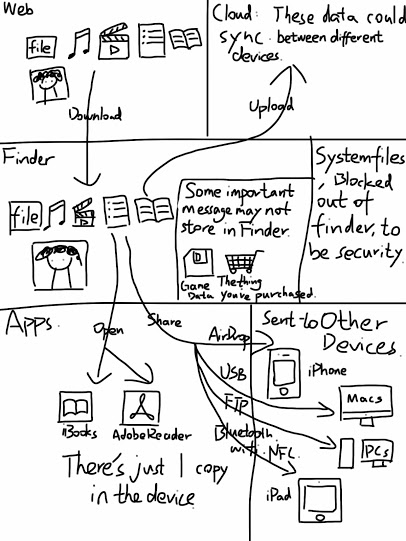 Web
file
Download
Cloud: These data could
sync between different
devices.
Upload
Finder
file
Some important
message may not
store in Finder.
Game
Data
The thing
you've purchased.
Systemfiles
, Blocked
out of
finder, to
be security.
Apps.
Open
Share
iBooks
AdobeReader
There's just 1 copy
in the device
AirDrop
USB
FTP
Bluetooth
wifi. NFC.
Sent to Other
Devices.
iPhone
Macs
PCs
iPad